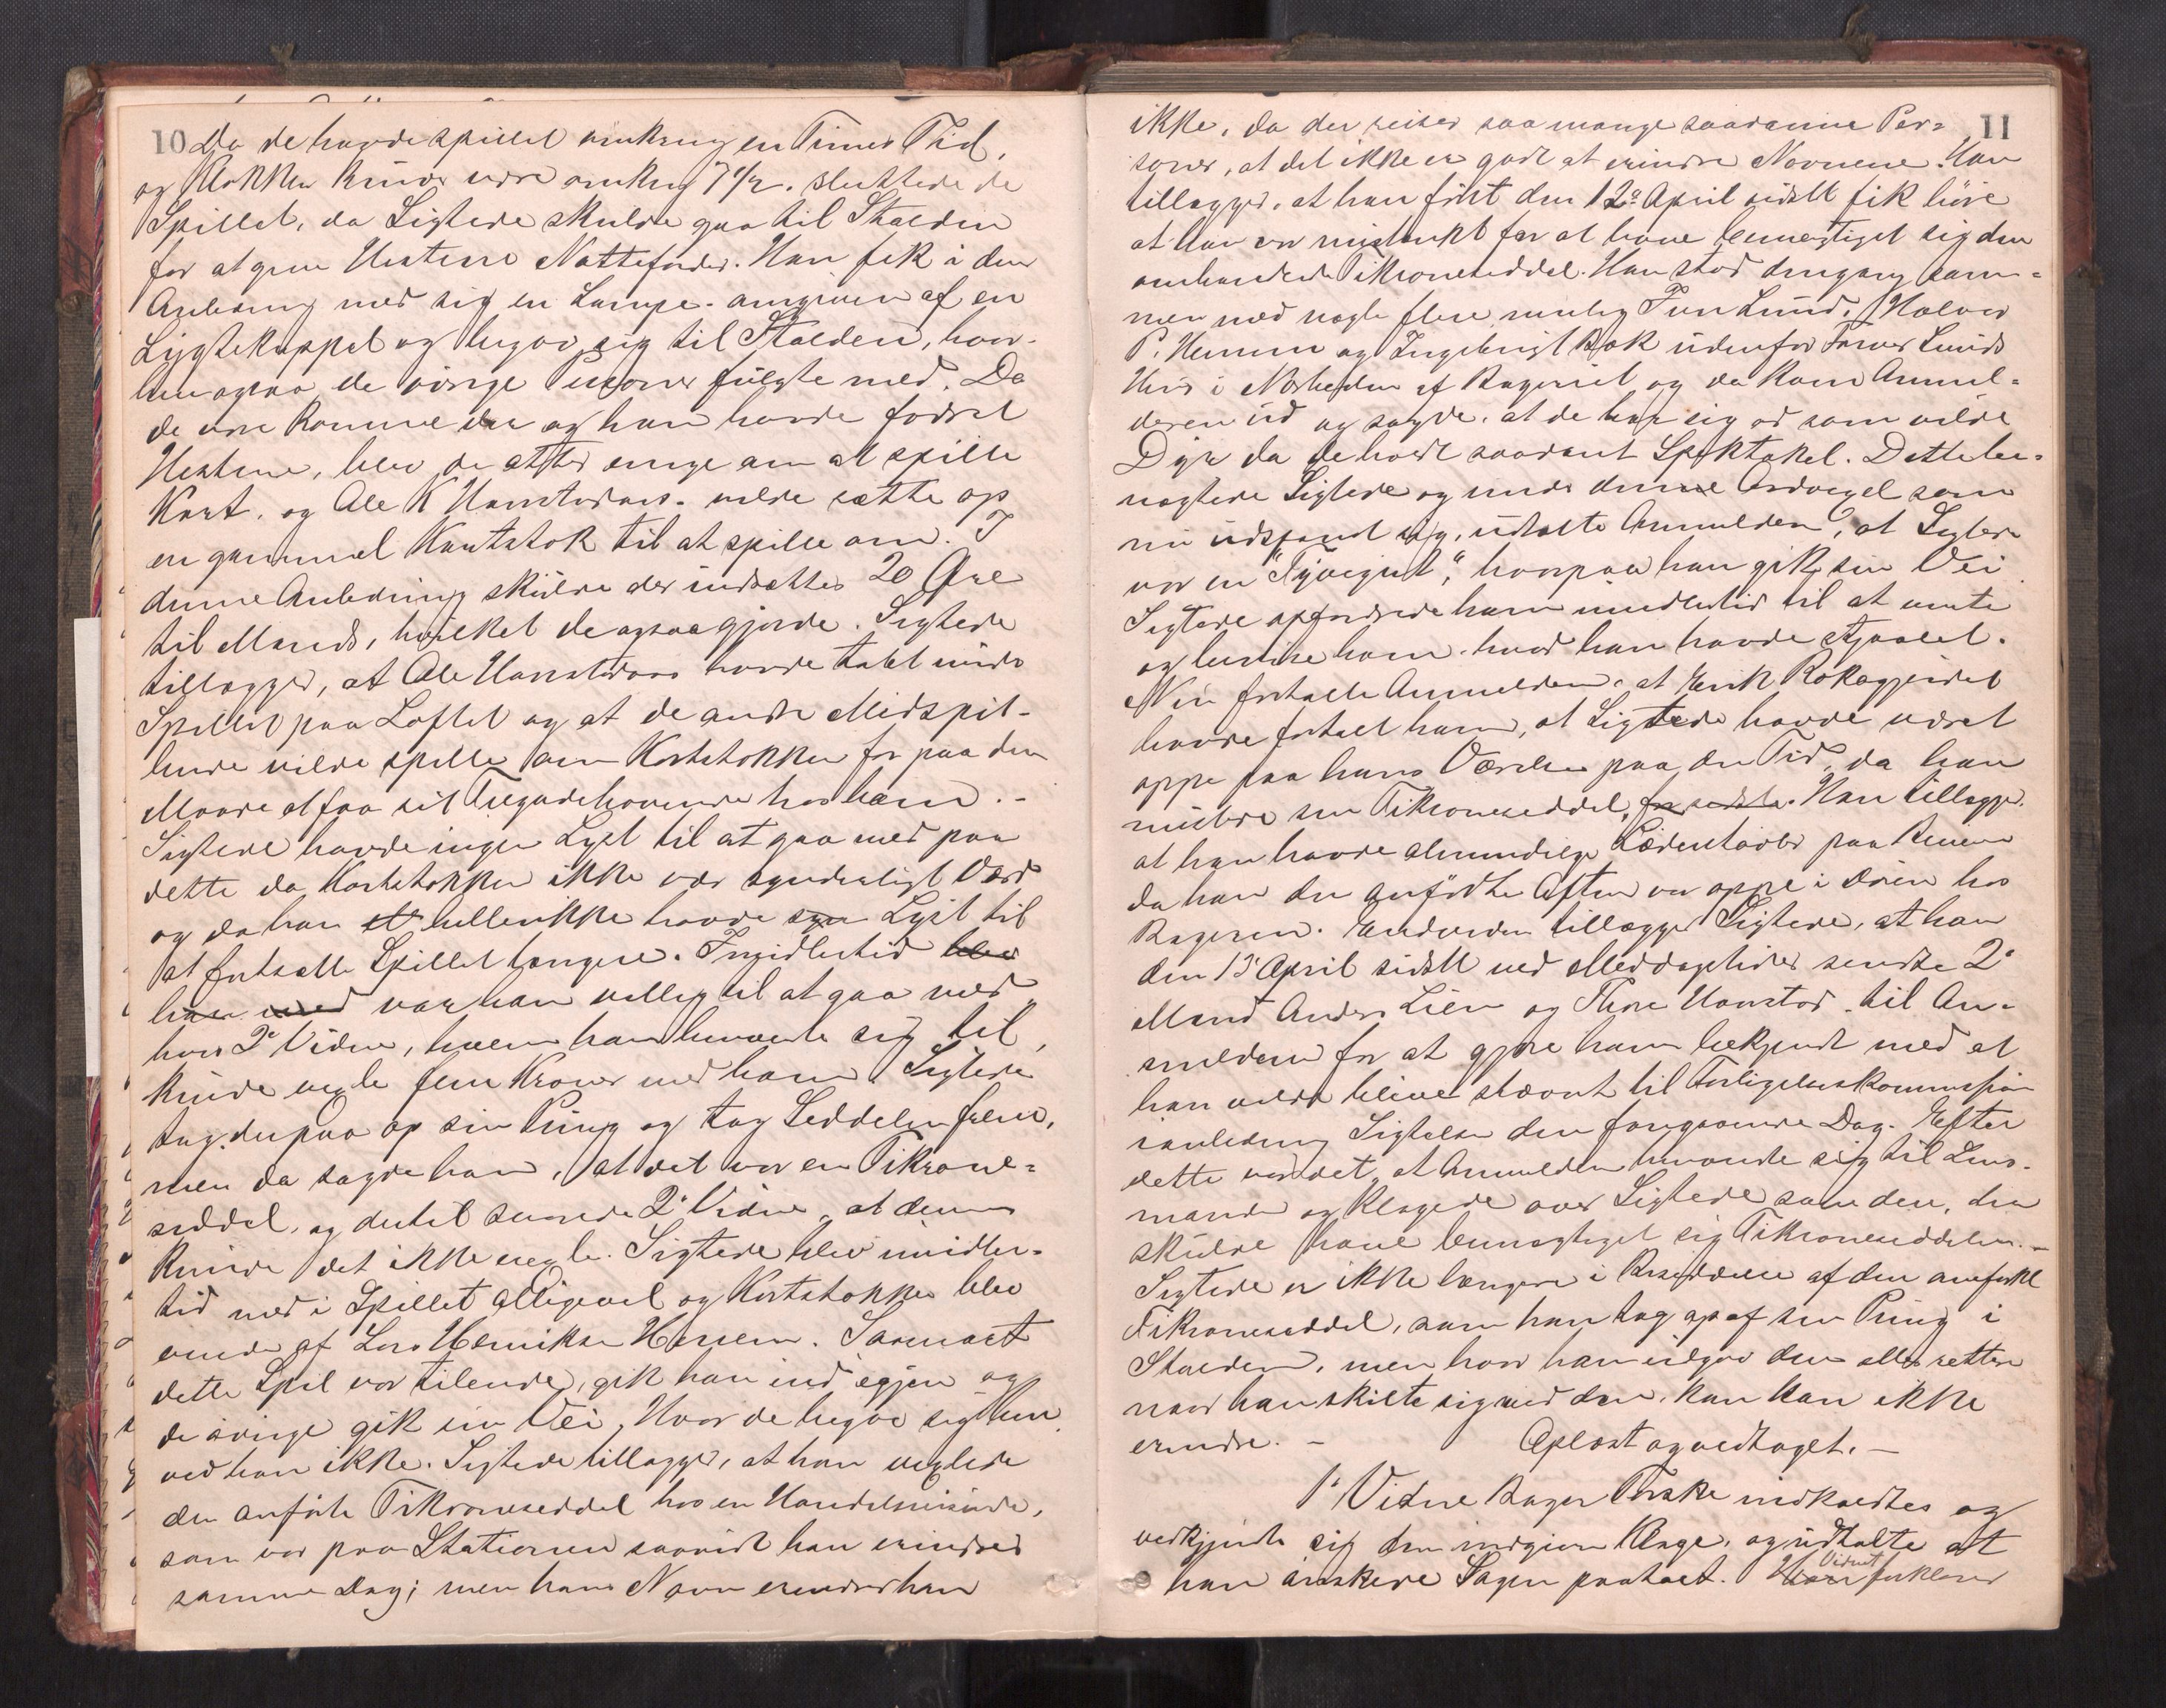 10 Da de havde spillet omkring en Times Tid,
og Klokken kunde være omkring 7 1/2. sluttede de
Spillet, da Sigtede skulde gaa til Stalden
for at give Hestene Nattefoder. Han fik i den
Anledning med sig en Lampe. omgiven af en
Lygtekuppel og begav sig til Stalden, hvor-
hen ogsaa de øvrige Personer fulgte med. Da
de vare komne der og han havde fodret
Hestene, blev de atter enige om at spille
Kort. og Ole K Hamstadaas. vilde sætte op
en gammel Kortstok til at spille om. I
denne Anledning skulde der indsættes 20 Øre
til Mands, hvilket de ogsaa gjorde. Sigtede
tillægger, at Ole Hamstadaas havde tabt under
Spillet paa Loftet og at de andre Medspil-
lende vilde spille om Kortstokken for paa den
Maade at faa sit Tilgodehavende hos ham. -
Sigtede havde ingen Lyst til at gaa med paa
dette da Kortstokken ikke var synderligt Værd
og da han hellerikke havde Lyst til
at fortsætte Spillet længere. Imidlertid blev
han med var han villig til at gaa med
hvis 2' Vidne, hvem han henvendte sig til,
kunde vexle fem Kroner med ham. Sigtede
tog derpaa op sin Pung og tog Seddelen frem,
men da sagde han, at det var en Tikrone-
seddel, og dertil svarede 2' Vidne, at denne
kunde det ikke vexle. Sigtede blev imidler-
tid med i Spillet alligevel og Kortstokken blev
vundet af Lars Henriksen Hansem. Saasnart
dette Spil var tilende, gik han ind igjen og
de øvrige gik sin Vei, Hvor de begav sig hen
ved han ikke. Sigtede tillægger, at han vexlede
den anførte Tikroneseddel hos en Handelsreisende,
som var paa Stationen saavidt han erindrer
samme Dag; men hans Navn erindrer han
11
ikke, da der reiser saa mange saadanne Per-
soner, at det ikke er godt at erindre Navnene. Han
tillægger, at han først den 12' April sidstl fik høre
at han var mistænkt for at have bemægtiget sig den
omhandlede Tikroneseddel. Han stod dengang sam-
men med nogle flere nemlig Lund, Halvor
P. Hemmen og Ingebrigt Bak udenfor Lunds
Hus i Nærheden af Bageriet og da kom Anmel-
deren ud og sagde, at de bar sig ad som vilde
Dyr da de holdt saadant Spektakel. Dette be-
nægtede Sigtede og under denne Ordvexel som
nu udspandt sig, udtalte Anmelderen, at Sigtede
var en "Tyvegut", hvorpaa han gik sin Vei
Sigtede opfordrede ham imidlertid til at vente
og bevise ham. hvad han havde stjaalet.
Nu fortalte Anmelderen, at Erik Rokagjerdet
havde fortalt ham, at Sigtede havde været
oppe paa hans Værelse paa den Tid, da han
mistede sin Tikroneseddel, Han tillægger
at han havde almindelige Læderstøvler paa Benene
da han den anførte Aften var oppe i Døren hos
Bageren. Endvidere tillægger Sigtede, at han
den 13' April sidstl ved Middagstider sendte 2'
Mand Anders Lien og Thore Hamstad. til An-
melderen for at gjøre ham bekjendt med at
han vilde blive stævnt til Forligelseskommission
ianledning Sigtelsen den foregaaende Dag. Efter
dette var det, at Anmelderen henvendte sig til Lens-
manden og klagede over Sigtede som den, der
skulde have bemægtiget sig Tikroneseddelen. -
Sigtede er ikke længere i Besiddelse af den anførte
Tikroneseddel, som han tog op af sin Pung i
Stalden, men hvor han udgav den eller rettere
naar han skilte sig ved den, kan han ikke
erindre. - Oplæst og vedtaget. -
1' Vidne Bager Torske indkaldtes og
vedkjendte sig den indgivne Klage, og udtalte at
han ønskede Sagen paatalt. Han Vidnet forklarer